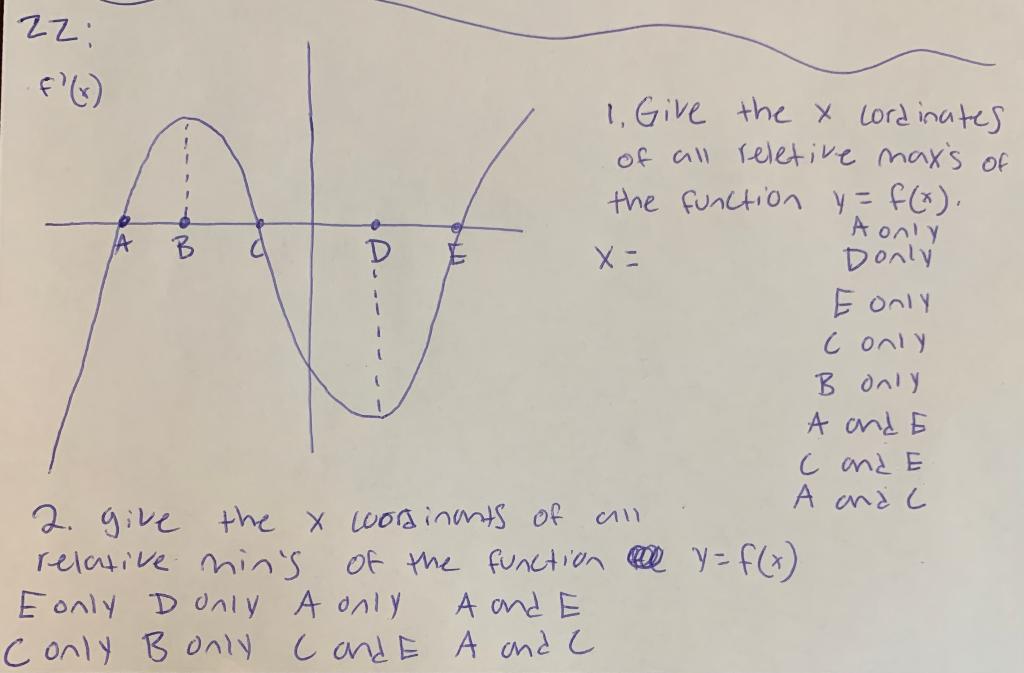 22:
f'(x)
A B C D E
1. Give the x cordinates
of all reletive max's of
the function y = f(x).
x =
A only
D only
E only
C only
B only
A and E
C and E
A and C
2. give the x
of all
relative min's of the function y=f(x)
E only D only A only A and E
C only B only C and E A and C